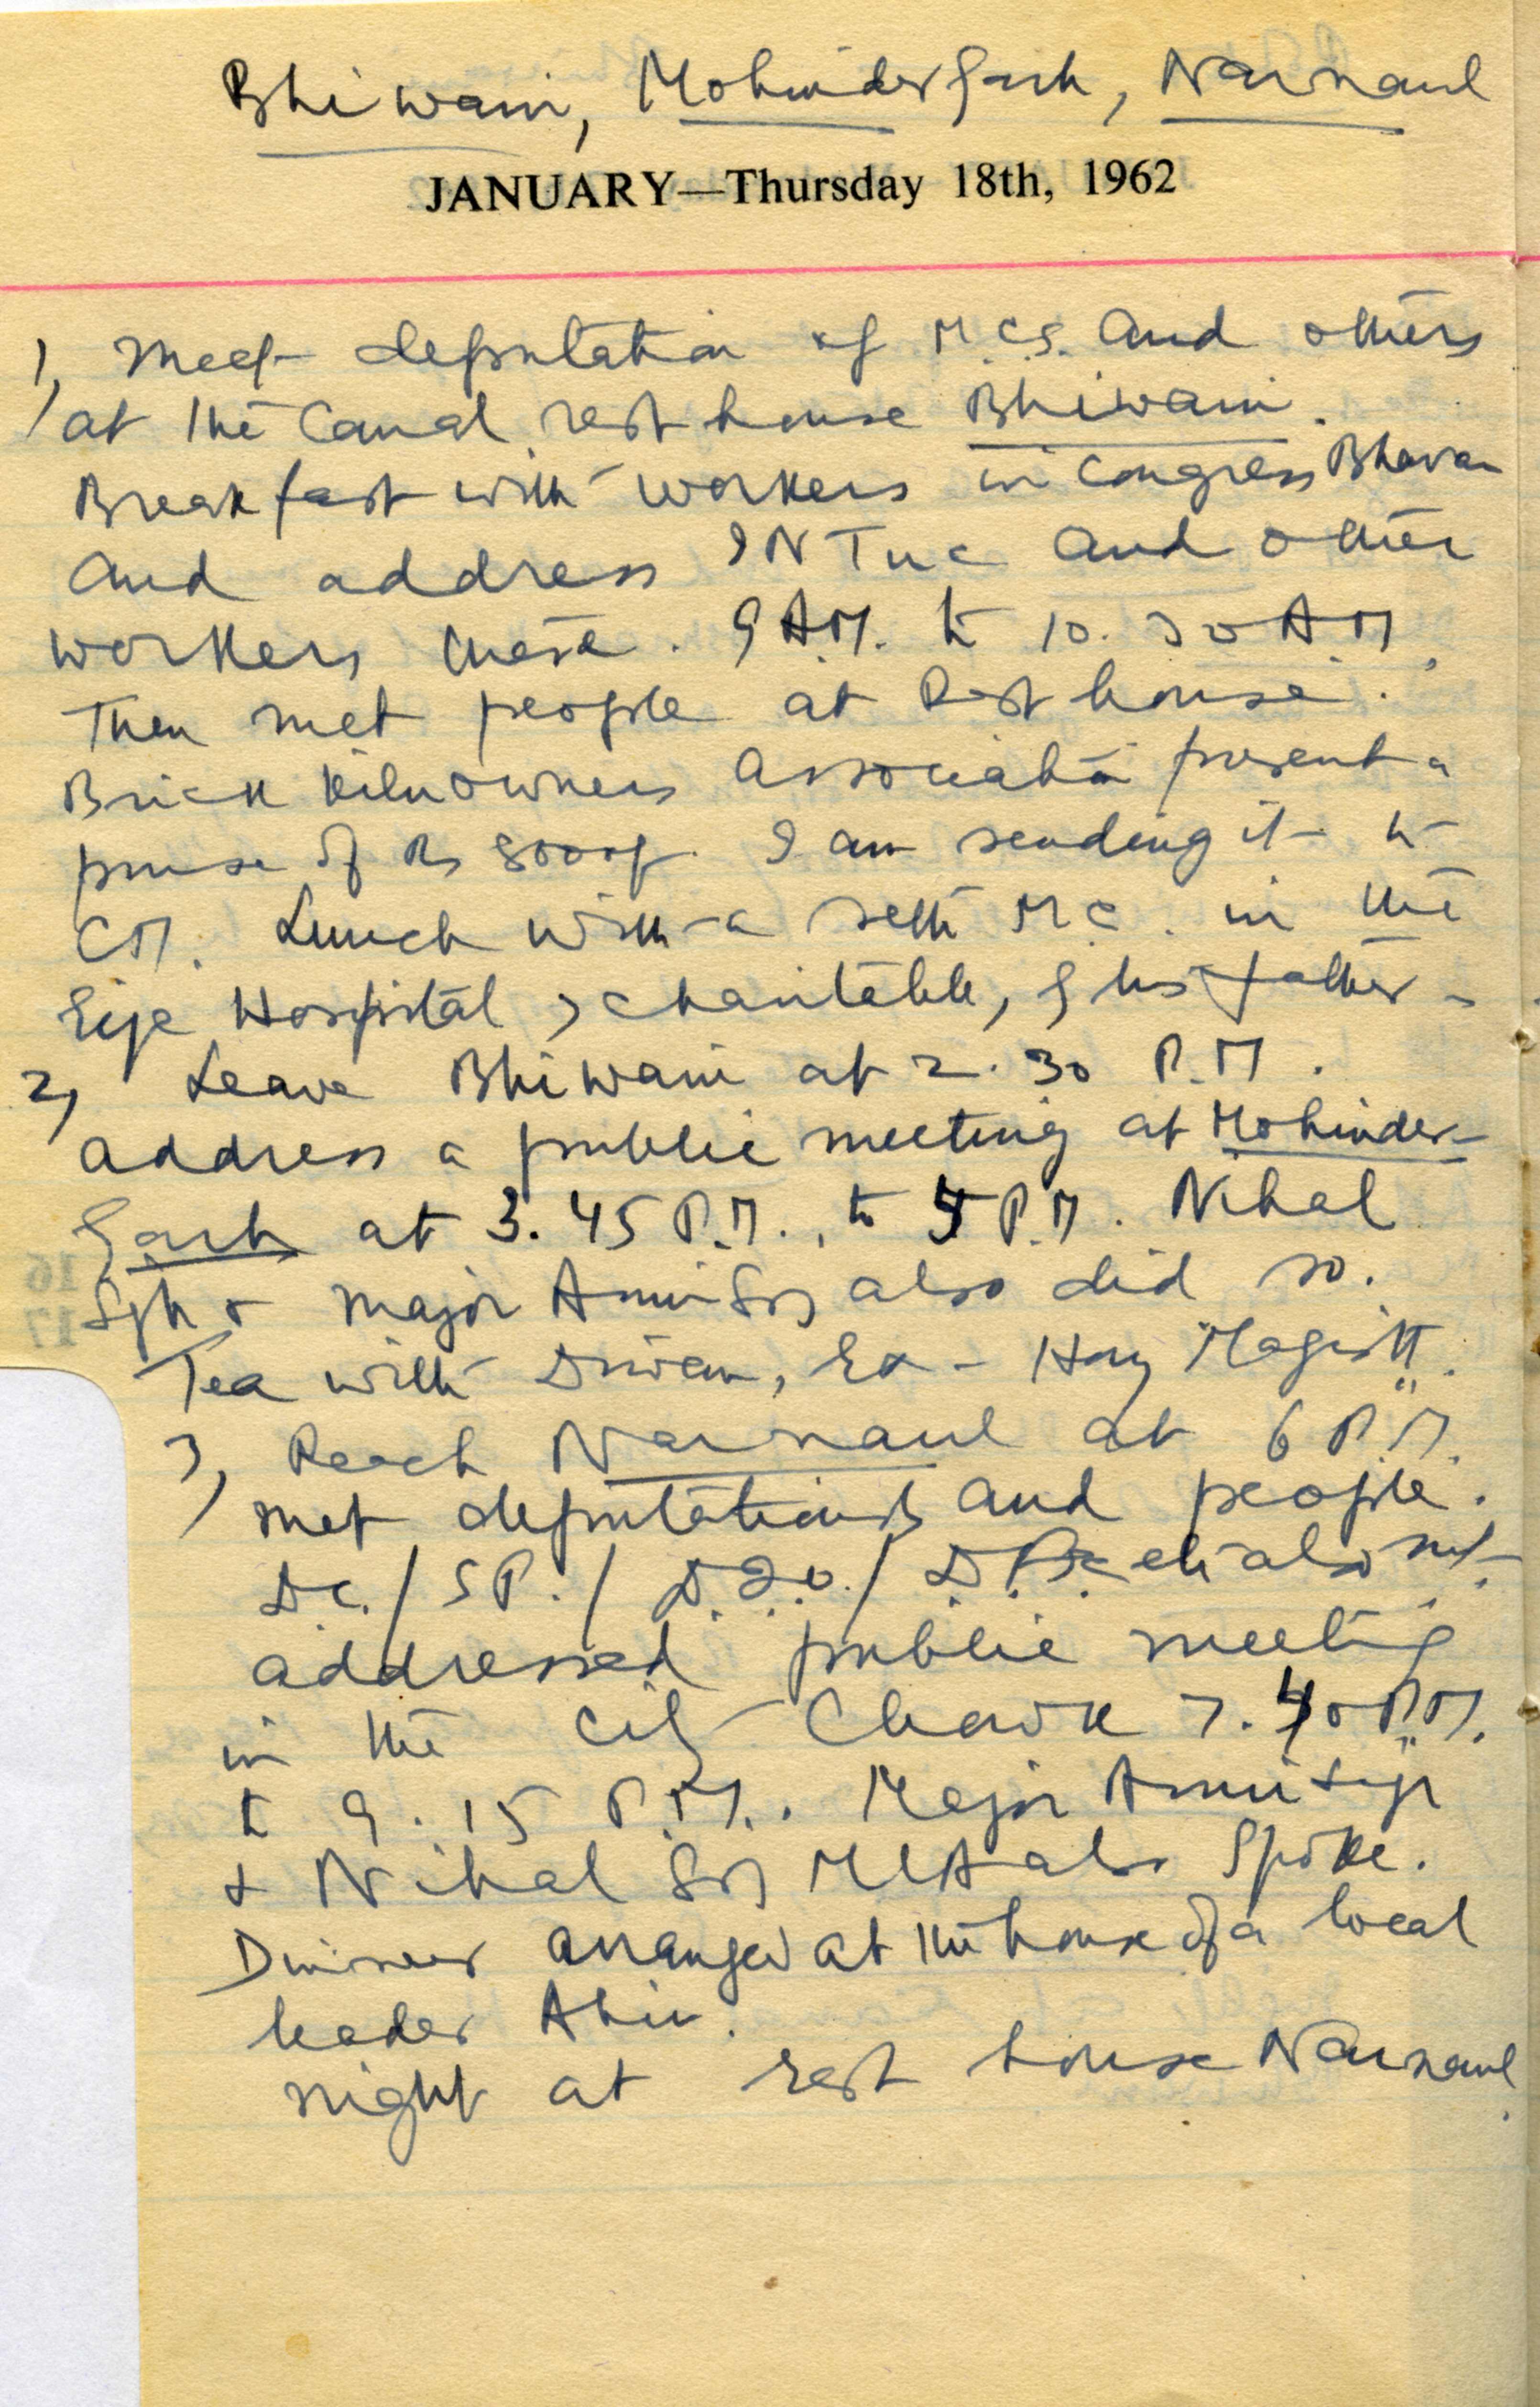 Bhiwani, Mohindergarh, Narnaul
JANUARY—Thursday 18th, 1962
1, Meet deputation of M.C.S. and others
at the Canal rest house Bhiwani.
Breakfast with workers in Congress Bhavan
and address INTUC and other
workers there. 9 A.M. to 10.30 A.M.
Then met people at Rest house.
Brick Kilnowners Association present a
purse of Rs 8000/-. I am sending it to
CM. Lunch with a Seth M.C. in the
Eye Hospital, charitable, of his father.
2, Leave Bhiwani at 2.30 P.M.
address a public meeting at Mohinder-
garh at 3.45 P.M., to 5 P.M. Nihal
Sgh & Major Amir Sgh also did so.
Tea with Diwan, Ex-Hony Magistt.
3, Reach Narnaul at 6 P.M.
met deputations and people.
D.C./S.P./D.I.O./ etc also met.
addressed public meeting
in the City Chowk 7.40 P.M.
to 9.15 P.M. Major Amir Singh
& Nihal Sgh MLA also spoke.
Dinner arranged at the house of a local
leader Ahir.
night at rest house Narnaul.